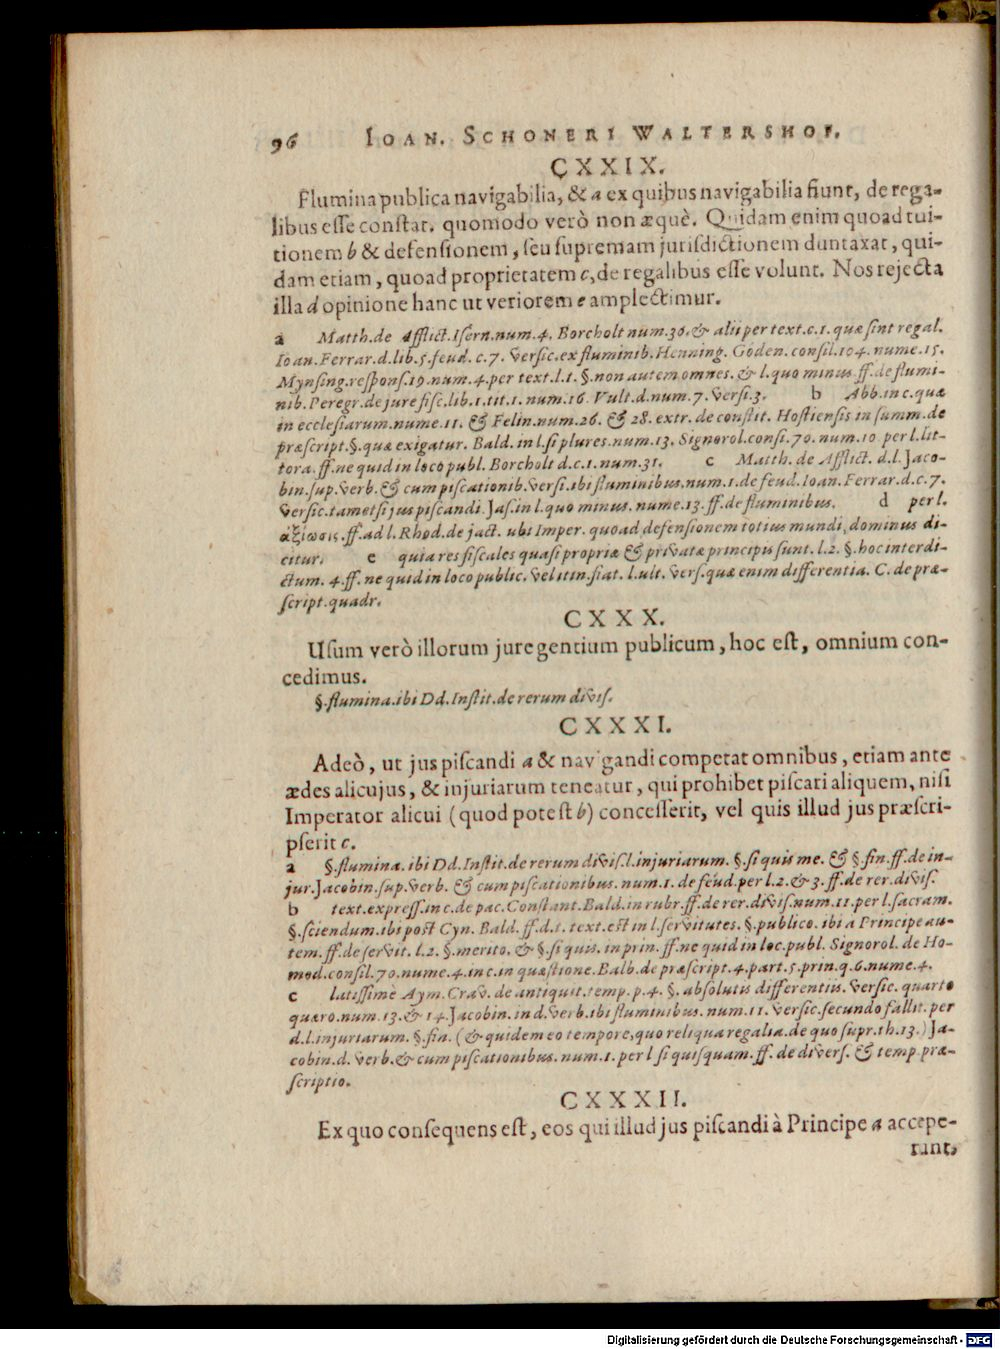 96 IOAN. SCHONERI WALTERSHOF.
CXXIX.
Flumina publica navigabilia, & a ex quibus navigabilia fiunt, de rega-
libus eſſe conſtat. quomodo verò non æquè. Quidam enim quoad tui-
tionem b & defenſionem, ſeu ſupremam jurisdictionem duntaxat, qui-
dam etiam, quoad proprietatem c, de regalibus eſſe volunt. Nos rejecta
illa d opinione hanc ut veriorem e amplectimur.
a Matth. de Afflict. Iſern. num. 4. Borcholt num. 30. & alii per text. c. 1. quæ ſint regal.
Ioan. Ferrar. d. lib. 5. feud. c. 7. Verſic. ex fluminib. Henning. Goden. conſil. 104. nume. 15.
Mynſing. reſponſ. 19. num. 4. per text. l. 1. §. non autem omnes. & l. quo minus ff. de flumi-
nib. Peregr. de jure fiſc. lib. 1. tit. 1. num. 16. Vult. d. num. 7. Verſi. 3. b Abb. in c. quæ
in eccleſiarum. nume. 11. & Felin. num. 26. & 28. extr. de conſtit. Hoſtienſis in ſumm. de
præſcript. §. quæ exigatur. Bald. in l. ſi plures. num. 13. Signorol. conſi. 70. num. 10 per l. lit-
tora. ff. ne quid in loco publ. Borcholt d. c. 1. num. 31. c Matth. de Afflict. d. l. Jaco-
bin. ſup. Verb. & cum piſcationib. Verſi. ibi fluminibus. num. 1. de feud. Ioan. Ferrar. d. c. 7.
Verſic. tametſi jus piſcandi. Jaſ. in l. quo minus. nume. 13. ff. de fluminibus. d per l.
ἀξίωσις. ff. ad l. Rhod. de jact. ubi Imper. quoad defenſionem totius mundi dominus di-
citur. e quia res fiſcales quaſi propriæ & privatæ principis ſunt. l. 2. §. hoc interdi-
ctum. 4. ff. ne quid in loco public. Vel itin. fiat. l. ult. Verſ. quæ enim differentia. C. de præ-
ſcript. quadr.
CXXX.
Uſum verò illorum jure gentium publicum, hoc eſt, omnium con-
cedimus.
§. flumina. ibi Dd. Inſtit. de rerum diviſ.
CXXXI.
Adeò, ut jus piſcandi a & navigandi competat omnibus, etiam ante
ædes alicujus, & injuriarum teneatur, qui prohibet piſcari aliquem, niſi
Imperator alicui (quod poteſt b) conceſſerit, vel quis illud jus præſcri-
pſerit c.
a §. flumina. ibi Dd. Inſtit. de rerum diviſ. l. injuriarum. §. ſi quis me. & §. fin. ff. de in-
jur. Jacobin. ſup. Verb. & cum piſcationibus. num. 1. de feud. per l. 2. & 3. ff. de rer. diviſ.
b text. expreſſ. in c. de pac. Conſtant. Bald. in rubr. ff. de rer. diviſ. num. 11. per l. ſacram.
§. ſciendum. ibi poſt Cyn. Bald. ff. d. t. text. eſt in l. ſervitutes. §. publico. ibi à Principe au-
tem. ff. de ſervit. l. 2. §. merito. & §. ſi quis. in prin. ff. ne quid in loc. publ. Signorol. de Ho-
mod. conſil. 70. nume. 4. in c. in quæſtione. Balb. de præſcript. 4. part. 5. prin. q. 6. nume. 4.
c latiſſimè Aym. Crav. de antiquit. temp. p. 4. §. abſolutis differentiis. Verſic. quarto
quæro. num. 13. & 14. Jacobin. in d. Verb. ibi fluminibus. num. 11. Verſic. ſecundo fallit. per
d. l. injuriarum. §. fin. (& quidem eo tempore, quo reliqua regalia. de quo ſupr. th. 13.) Ja-
cobin. d. Verb. & cum piſcationibus. num. 1. per l ſi quiſquam. ff. de diverſ. & temp. præ-
ſcriptio.
CXXXII.
Ex quo conſequens eſt, eos qui illud jus piſcandi à Principe a accepe-
runt,
Digitalisierung gefördert durch die Deutsche Forschungsgemeinschaft - DFG